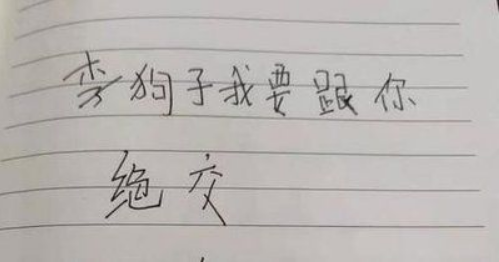 李狗子我要跟你
绝交